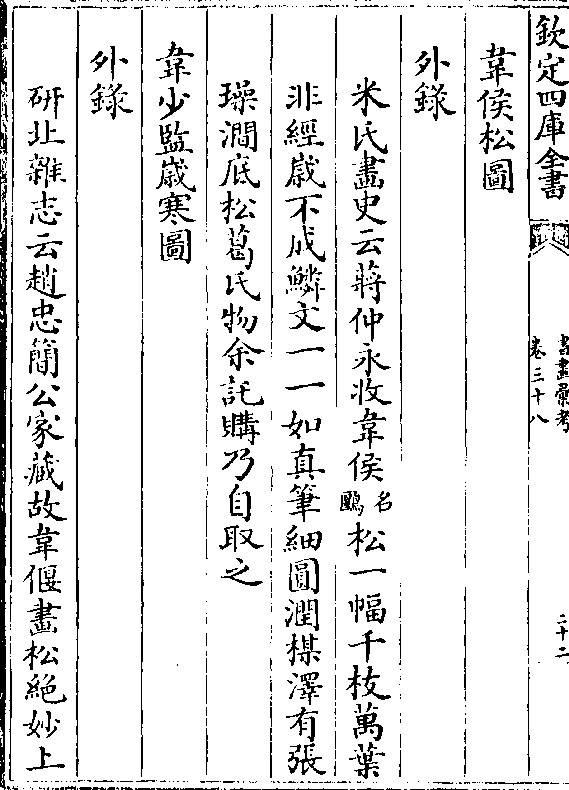 欽定四庫全書
書畫彙考
卷三十八
二十二
韋侯松圖
外錄
米氏畫史云蔣仲永收韋侯名鷗松一幅千枝萬葉
非經歲不成鱗文一一如真筆細圓潤楳澤有張
璪澗底松葛氏物余託購乃自取之
韋少監歲寒圖
外錄
研北雜志云趙忠簡公家藏故韋偃畫松絕妙上